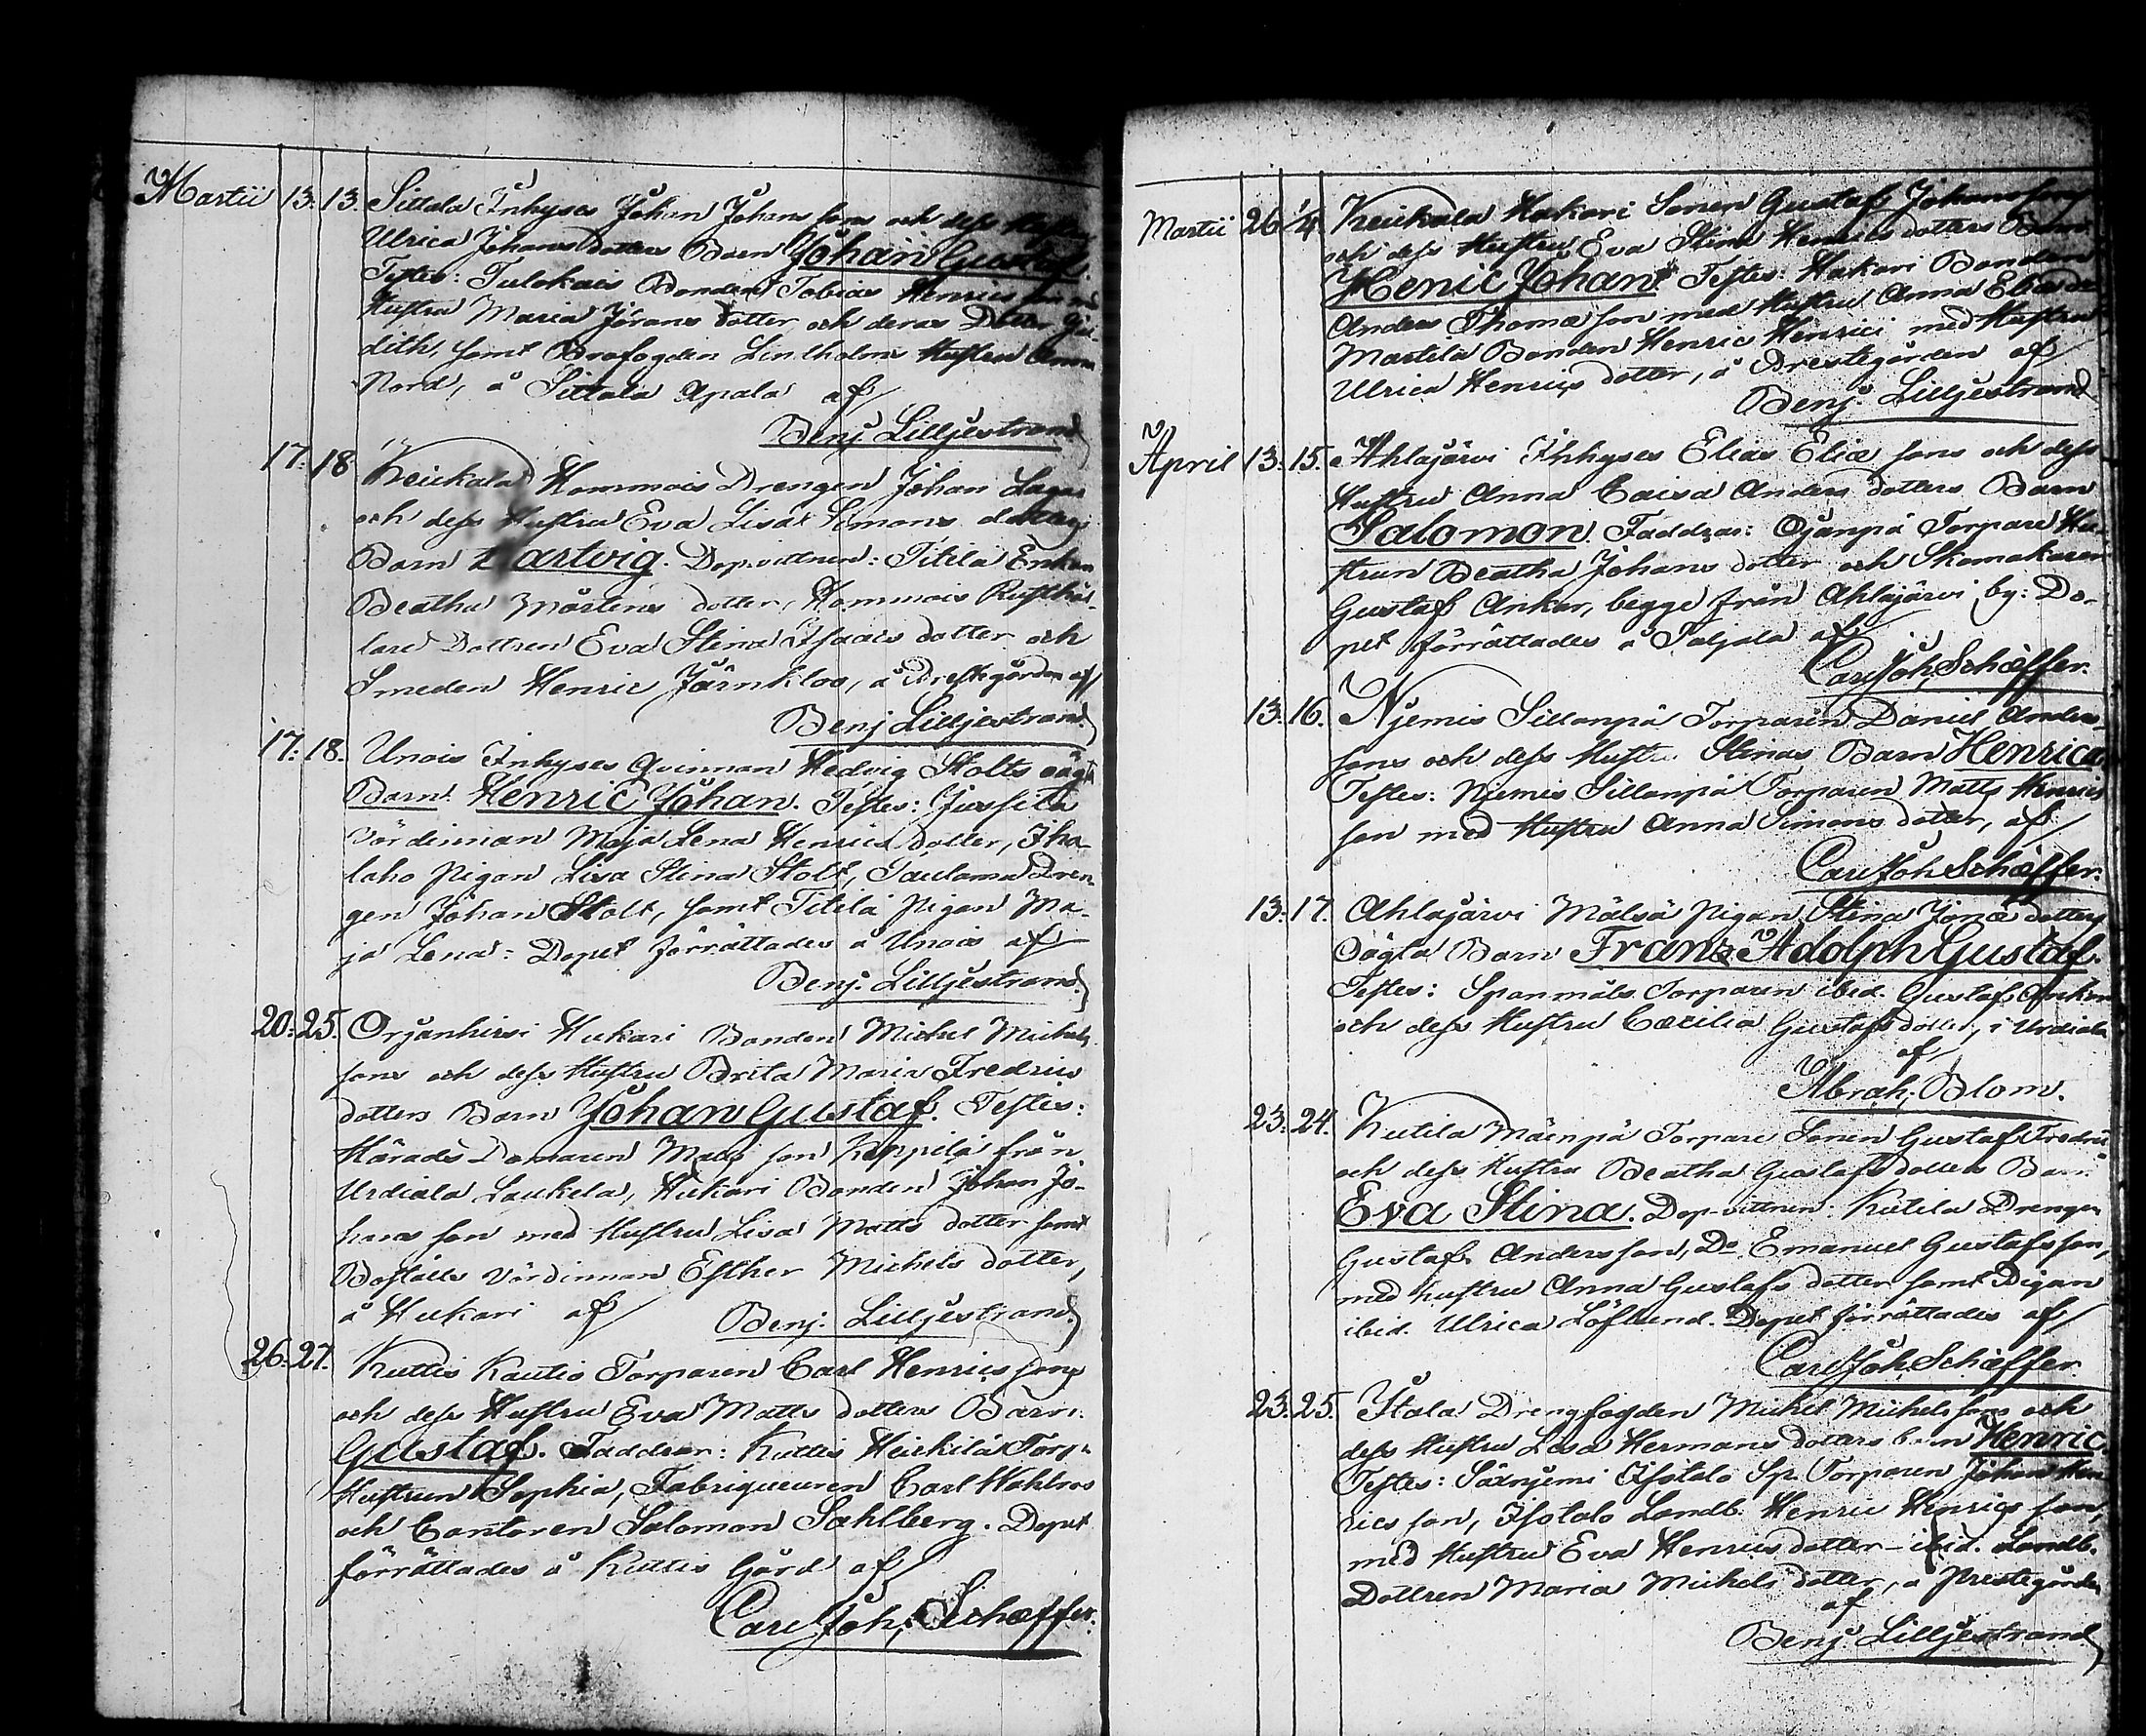 Martii 13. 13. Sittala Inhyses Johan Johans sons och dess Hustru
Ulrica Johans dotters Barn Johan Gustaf.
Testes: Tulokais Bonden Tobias Henrics son med
Hustru Maria Jörans dotter och deras Dotter Ju-
dith, samt Brofogden Lintholms Hustru Anna
Nord, å Sittala Apala af
Benj. Lilljestrand
17. 18 Keickala Hommais Drengen Johan Lagas
och dess Hustru Eva Lisa Simons dotters
Barn Hartvig. Dop-vittnen: Titilä Enkan
Beatha Mårtens dotter, Hommais Rusthål-
lare Dottren Eva Stina Isaacs dotter och
Smeden Henric Järnkloo, å Prestgården af
Benj Lilljestrand.
17. 18. Unois Inhyses Qvinnan Hedvig Stolts oägta
Barn Henric Johan. Testes: Jussila
Värdinnan Maja Lena Henrics dotter, Iha-
laho Pigan Lisa Stina Stolt, Taulama Dren-
gen Johan Stolt, samt Titilä Pigan Ma-
ja Lena: Dopet förrättades å Unois af
Benj. Lilljestrand.
20. 25. Orjanhirsi Hukari Bonden Michel Michels
sons och dess Hustru Brita Maria Fredrics
dotters Barn Johan Gustaf. Testes:
Härads Domaren Matts son Keppilä från
Urdiala Laukela, Hukari Bonden Johan Jo-
hans son med Hustru Lisa Matts dotter samt
Boställs Värdinnan Esther Michels dotter,
å Hukari af Benj. Lilljestrand.
26. 27. Kuttis Kautio Torparen Carl Henrics sons
och dess Hustru Eva Matts dotters Barn
Gustaf. Faddrar: Kuttis Heickilä Torp.
Hustrun Sophia, Fabriqueuren Carl Wahlroos
och Cantoren Salomon Sahlberg. Dopet
förrättades å Kuttis Gård af
Carl Joh: Schæffer.
Martii 26 1/4. Keickala Hakari Sonen Gustaf Johans sons
och dess Hustru Eva Stina Henrics dotters Barn
Henric Johan. Testes: Hakari Bonden
Anders Thomæ son med Hustru Anna Eliæ dr
Martila Bonden Henric Henrici med Hustru
Ulrica Henrics dotter, å Prestegården af
Benj. Lilljestrand
April 13. 15. Ahlajärvi Inhyses Elias Eliæ sons och dess
Hustru Anna Caisa Anders dotters Barn
Salomon. Faddrar: Ojanpä Torpare Hu-
strun Beatha Johans dotter och Skomakaren
Gustaf Ankar, begge från Ahlajärvi by: Do-
pet förrättades å Taljala af
Carl Joh, Schæffer.
13. 16. Njemis Sillanpä Torparen Daniel Anders
sons och dess Hustru Stinas Barn Henrica
Testes: Njemis Sillanpä Torparen Matts Henrics
son med Hustru Anna Simons dotter, af
Carl Joh Schæffer.
13. 17. Ahlajärvi Mälsä Pigan Stina Jonæ dotters
Oägta Barn Franz Adolph Gustaf.
Testes: Spanmåls Torparen ibid. Gustaf Ankar
och dess Hustru Cæcilia Gustafs dotter, i Urdiala
af
Abrah: Blom.
23. 24. Kutila Mäenpä Torpare Sonen Gustaf Fredric
och dess Hustru Beatha Gustafs dotters Barn
Eva Stina. Dop-vittnen: Kutila Drengen
Gustaf Andersson, Do Emanuel Gustafs son,
med hustru Anna Gustafs dotter samt Pigan
ibid. Ulrica Löflund. Dopet förrättades af
Carl Joh, Schæffer.
23. 25. Stala Drengfogden Michel Michels sons och
dess Hustru Lisa Hermans dotters barn Henric.
Testes: Säxnjemi Isotalo Sp. Torparen Johan Hen-
rics son, Isotalo Landb. Henric Henrics son,
med Hustru Eva Henrics dotter - ibid. Landb.
Dottren Maria Michels dotter, å Prestegården
af
Benj. Lilljestrand